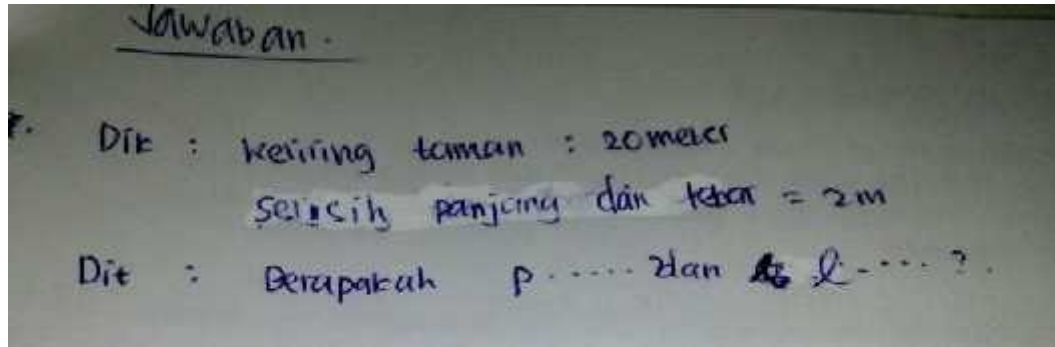 Jawaban.
Dik : keliring taman : 20 meter
Selisih panjang dan lebar = 2m
Dit : Berapakah p ..... dan l ..... ?.